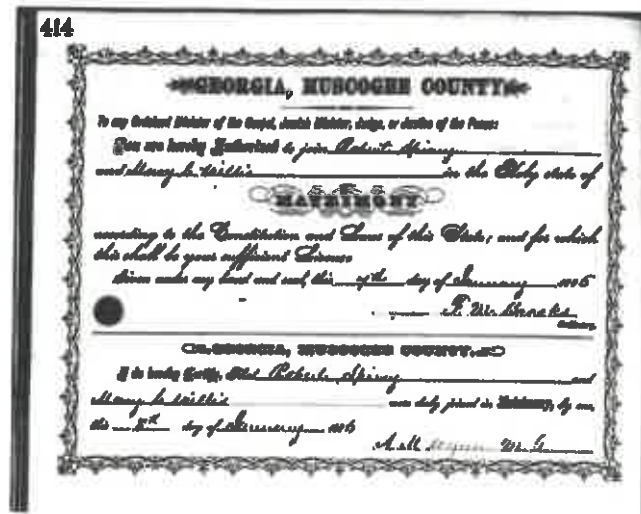 414
GEORGIA, MUSCOGEE COUNTY
To any Ordained Minister of the Gospel, Jewish Minister, Judge, or Justice of the Peace:
You are hereby Authorized to join Robert Spivey
and Mary C. Willis in the Holy state of
MATRIMONY
according to the Constitution and Laws of this State; and for which
this shall be your sufficient License
Given under my hand and seal, this day of January
F. M. Brooks
Ordinary.
GEORGIA, MUSCOGEE COUNTY.
I do hereby Certify, that Robert Spivey and
Mary C. Willis were duly joined in Matrimony, by me,
this day of January
A. M. Wynn M. G.